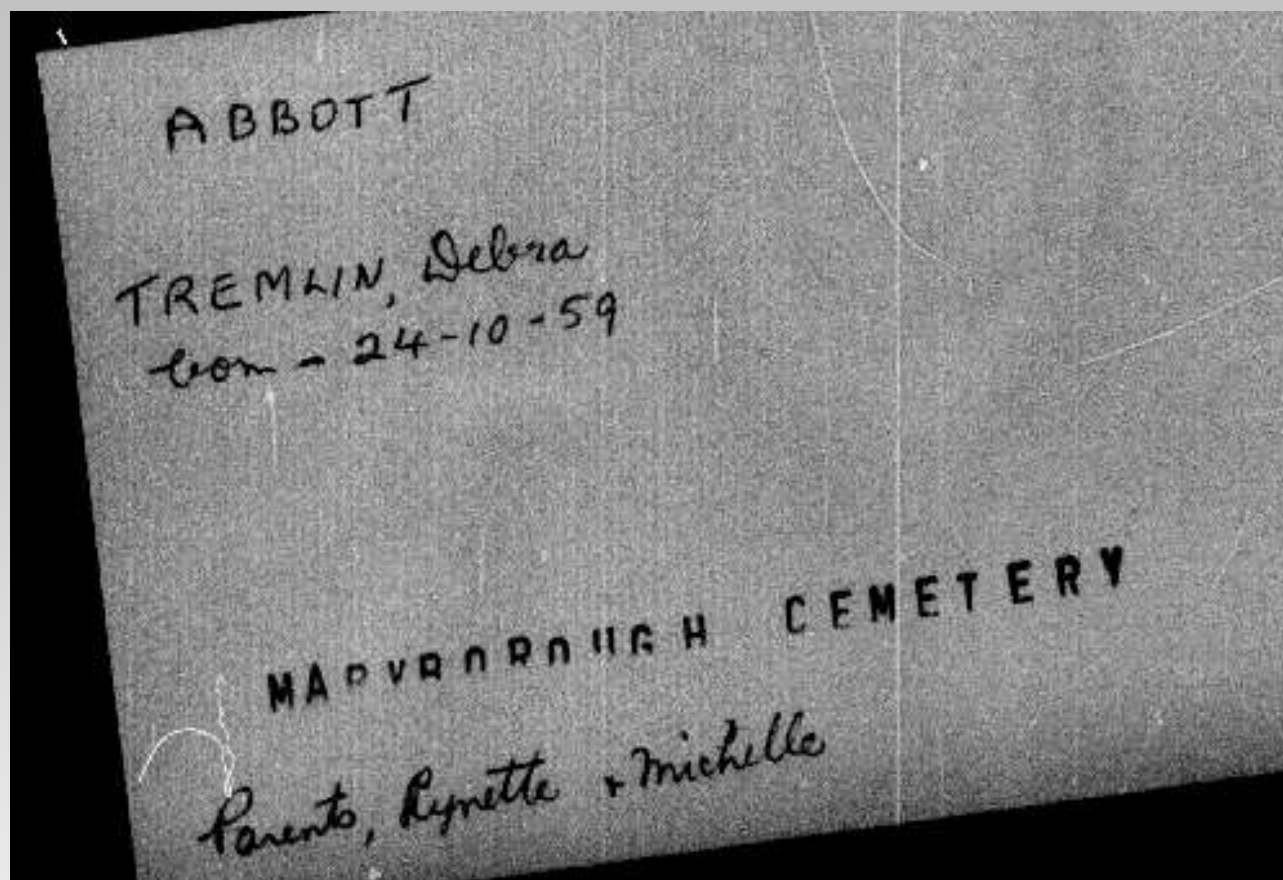 ABBOTT
TREMLIN, Debra
born - 24-10-59
MARYBOROUGH CEMETERY
Parents, Lynette + Michelle